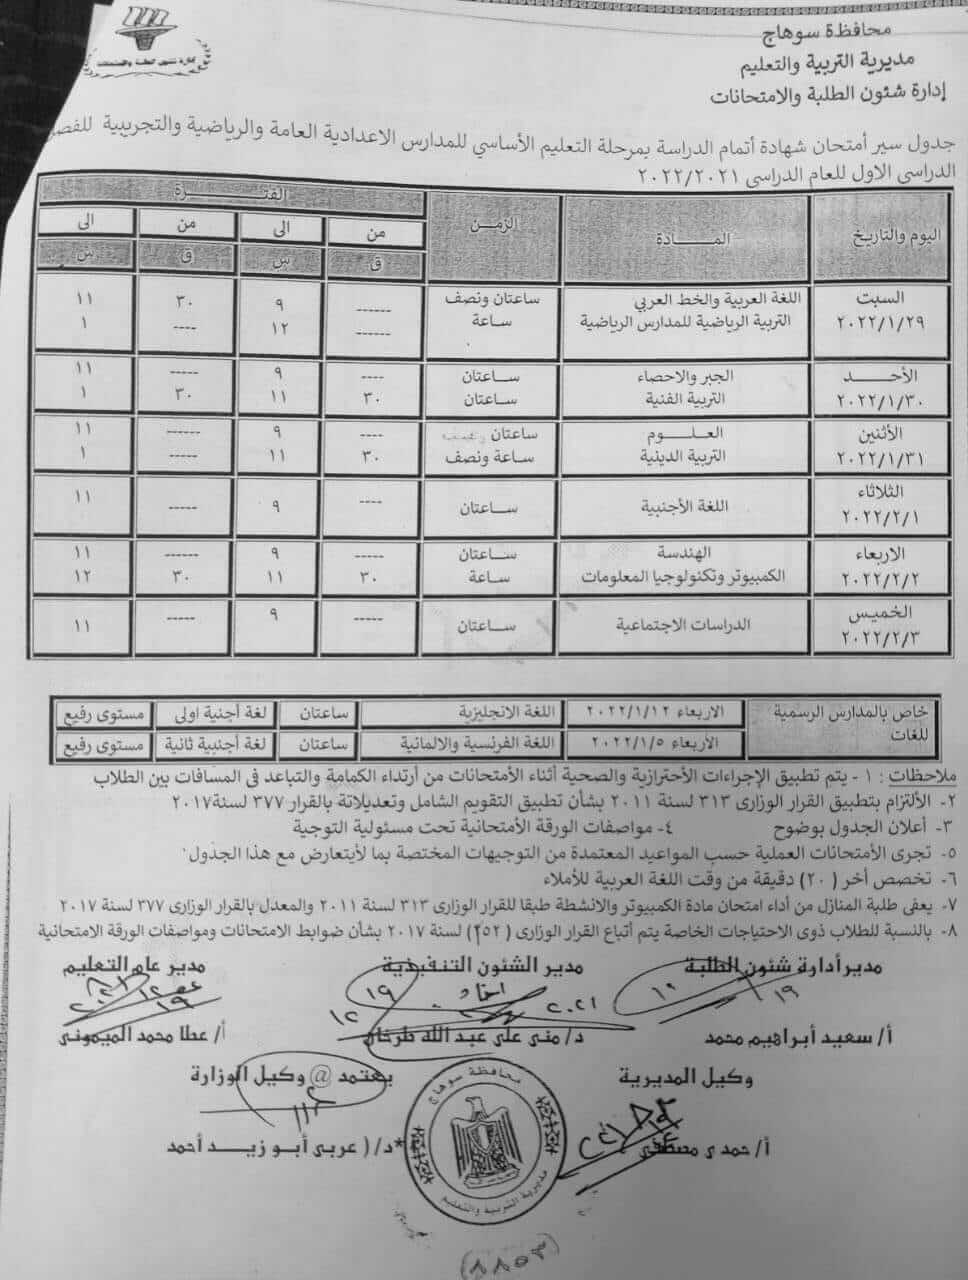 محافظة سوهاج
مديرية التربية والتعليم
إدارة شئون الطلبة والامتحانات
جدول سير أمتحان شهادة أتمام الدراسة بمرحلة التعليم الأساسي للمدارس الاعدادية العامة والرياضية والتجريبية للفصل
الدراسى الاول للعام الدراسى ٢٠٢٢/٢٠٢١
اليوم والتاريخ المـــادة الزمن الفتــــرة
من الى من الى
ق س ق س
السبت اللغة العربية والخط العربي ساعتان ونصف ------ ٩ ٣٠ ١١
٢٠٢٢/١/٢٩ التربية الرياضية للمدارس الرياضية ساعة ------ ١٢ ---- ١
الأحـــد الجبر والاحصاء ساعتان ---- ٩ ----- ١١
٢٠٢٢/١/٣٠ التربية الفنية ساعتان ٣٠ ١١ ٣٠ ١
الأثنين العلـــوم ساعتان ---- ٩ ------ ١١
٢٠٢٢/١/٣١ التربية الدينية ساعة ونصف ٣٠ ١١ ----- ١
الثلاثاء
٢٠٢٢/٢/١ اللغة الأجنبية ساعتان ---- ٩ ----- ١١
الاربعاء الهندسة ساعتان ----- ٩ ------ ١١
٢٠٢٢/٢/٢ الكمبيوتر وتكنولوجيا المعلومات ساعة ٣٠ ١١ ٣٠ ١٢
الخميس
٢٠٢٢/٢/٣ الدراسات الاجتماعية ساعتان ----- ٩ ----- ١١
خاص بالمدارس الرسمية للغات
الاربعاء ٢٠٢٢/١/١٢ اللغة الانجليزية ساعتان لغة أجنية اولى مستوى رفيع
الأربعاء ٢٠٢٢/١/٥ اللغة الفرنسية والالمانية ساعتان لغة أجنبية ثانية مستوى رفيع
ملاحظات : ١ - يتم تطبيق الإجراءات الأحترازية والصحية أثناء الأمتحانات من أرتداء الكمامة والتباعد فى المسافات بين الطلاب
٢- الألتزام بتطبيق القرار الوزارى ٣١٣ لسنة ٢٠١١ بشأن تطبيق التقويم الشامل وتعديلاتة بالقرار ٣٧٧ لسنة٢٠١٧
٣- أعلان الجدول بوضوح ٤- مواصفات الورقة الأمتحانية تحت مسئولية التوجية
٥- تجرى الأمتحانات العملية حسب المواعيد المعتمدة من التوجيهات المختصة بما لأيتعارض مع هذا الجدول
٦- تخصص أخر (٢٠) دقيقة من وقت اللغة العربية للأملاء
٧- يعفى طلبة المنازل من أداء امتحان مادة الكمبيوتر والانشطة طبقا للقرار الوزارى ٣١٣ لسنة ٢٠١١ والمعدل بالقرار الوزارى ٣٧٧ لسنة ٢٠١٧
٨- بالنسبة للطلاب ذوى الاحتياجات الخاصة يتم أتباع القرار الوزارى (٢٥٢) لسنة ٢٠١٧ بشأن ضوابط الامتحانات ومواصفات الورقة الامتحانية
مدير أدارة شئون الطلبة مدير الشئون التنفيذية مدير عام التعليم
أ/ سعيد أبراهيم محمد د/ منى على عبد اللاه طرخان أ/ عطا محمد الميمونى
وكيل المديرية يعتمد @ وكيل الوزارة
أ/ حمدى مصطفى *د/ ( عربى أبو زيد أحمد
محافظة سوهاج
مديرية التربية والتعليم
(٨٨٥٣)